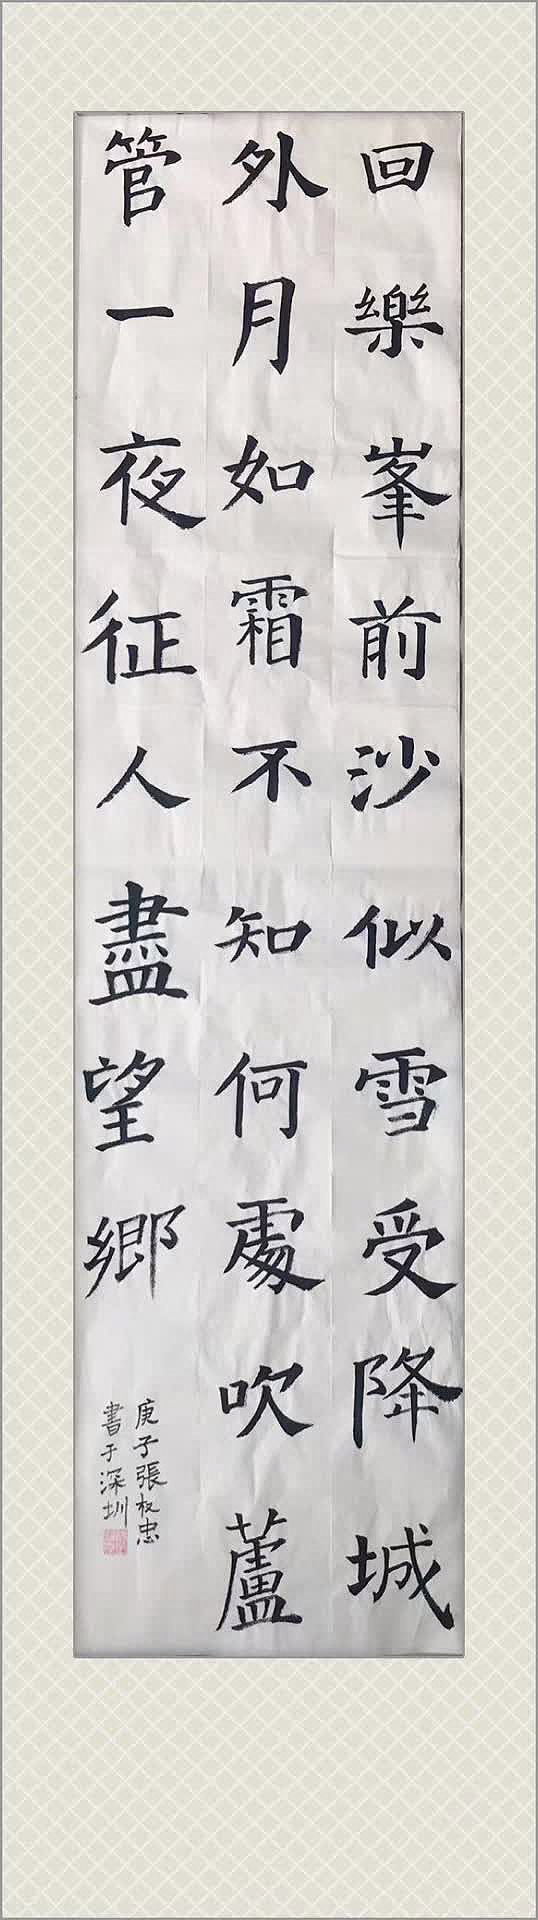 回樂峯前沙似雪受降城
外月如霜不知何處吹蘆
管一夜征人盡望鄉
庚子張权忠
書于深圳